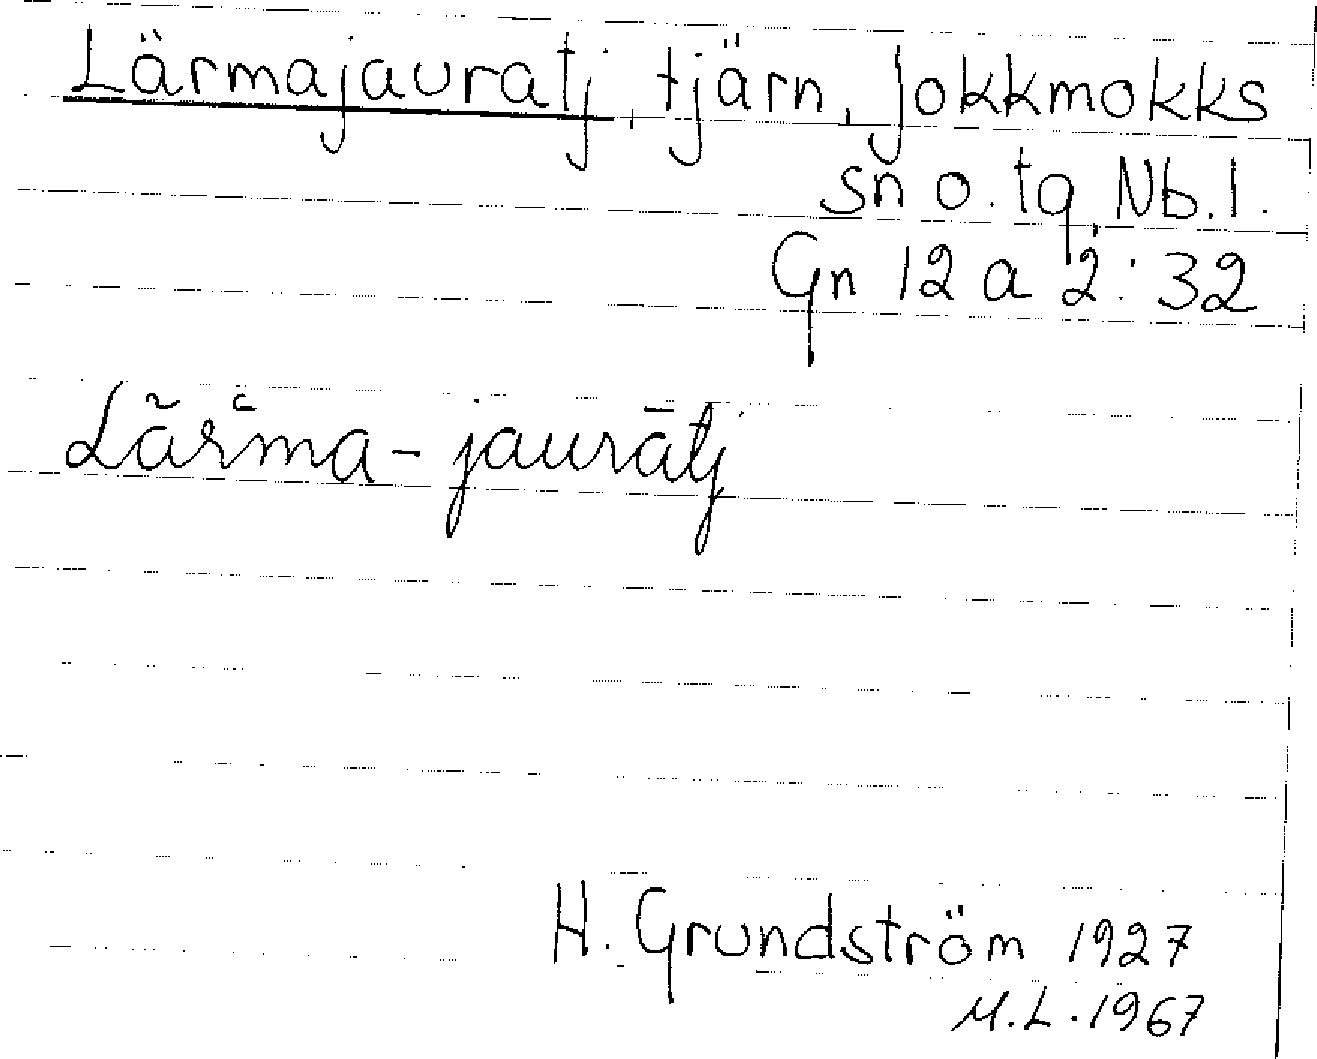 Lärmajauratj, tjärn, Jokkmokks
sn o. tq, Nb. l.
Gn 12 a 2:32
Lārma-jaurātj
H. Grundström 1927
M.L. 1967